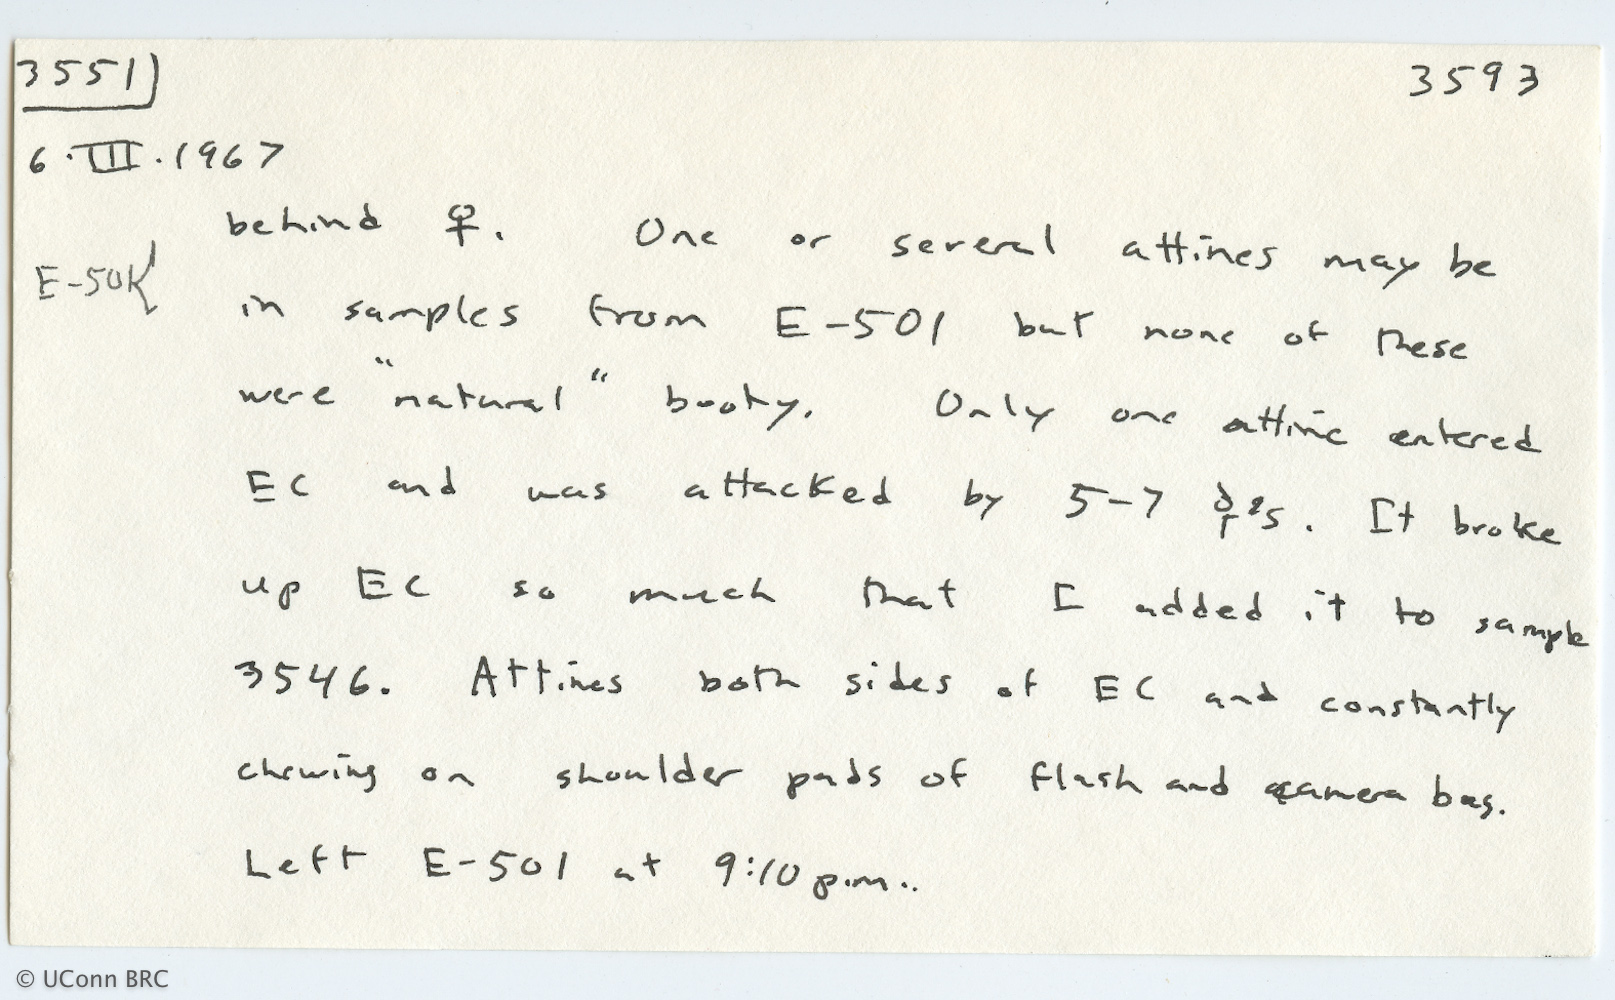 3551) 3593
6.III.1967
behind ♀. One or several attines may be
E-501 in samples from E-501 but none of these
were "natural" booty. Only one attine entered
EC and was attacked by 5-7 s. It broke
up EC so much that I added it to sample
3546. Attines both sides of EC and constantly
chewing on shoulder pads of flash and camera bag.
Left E-501 at 9:10 p.m..
© UConn BRC